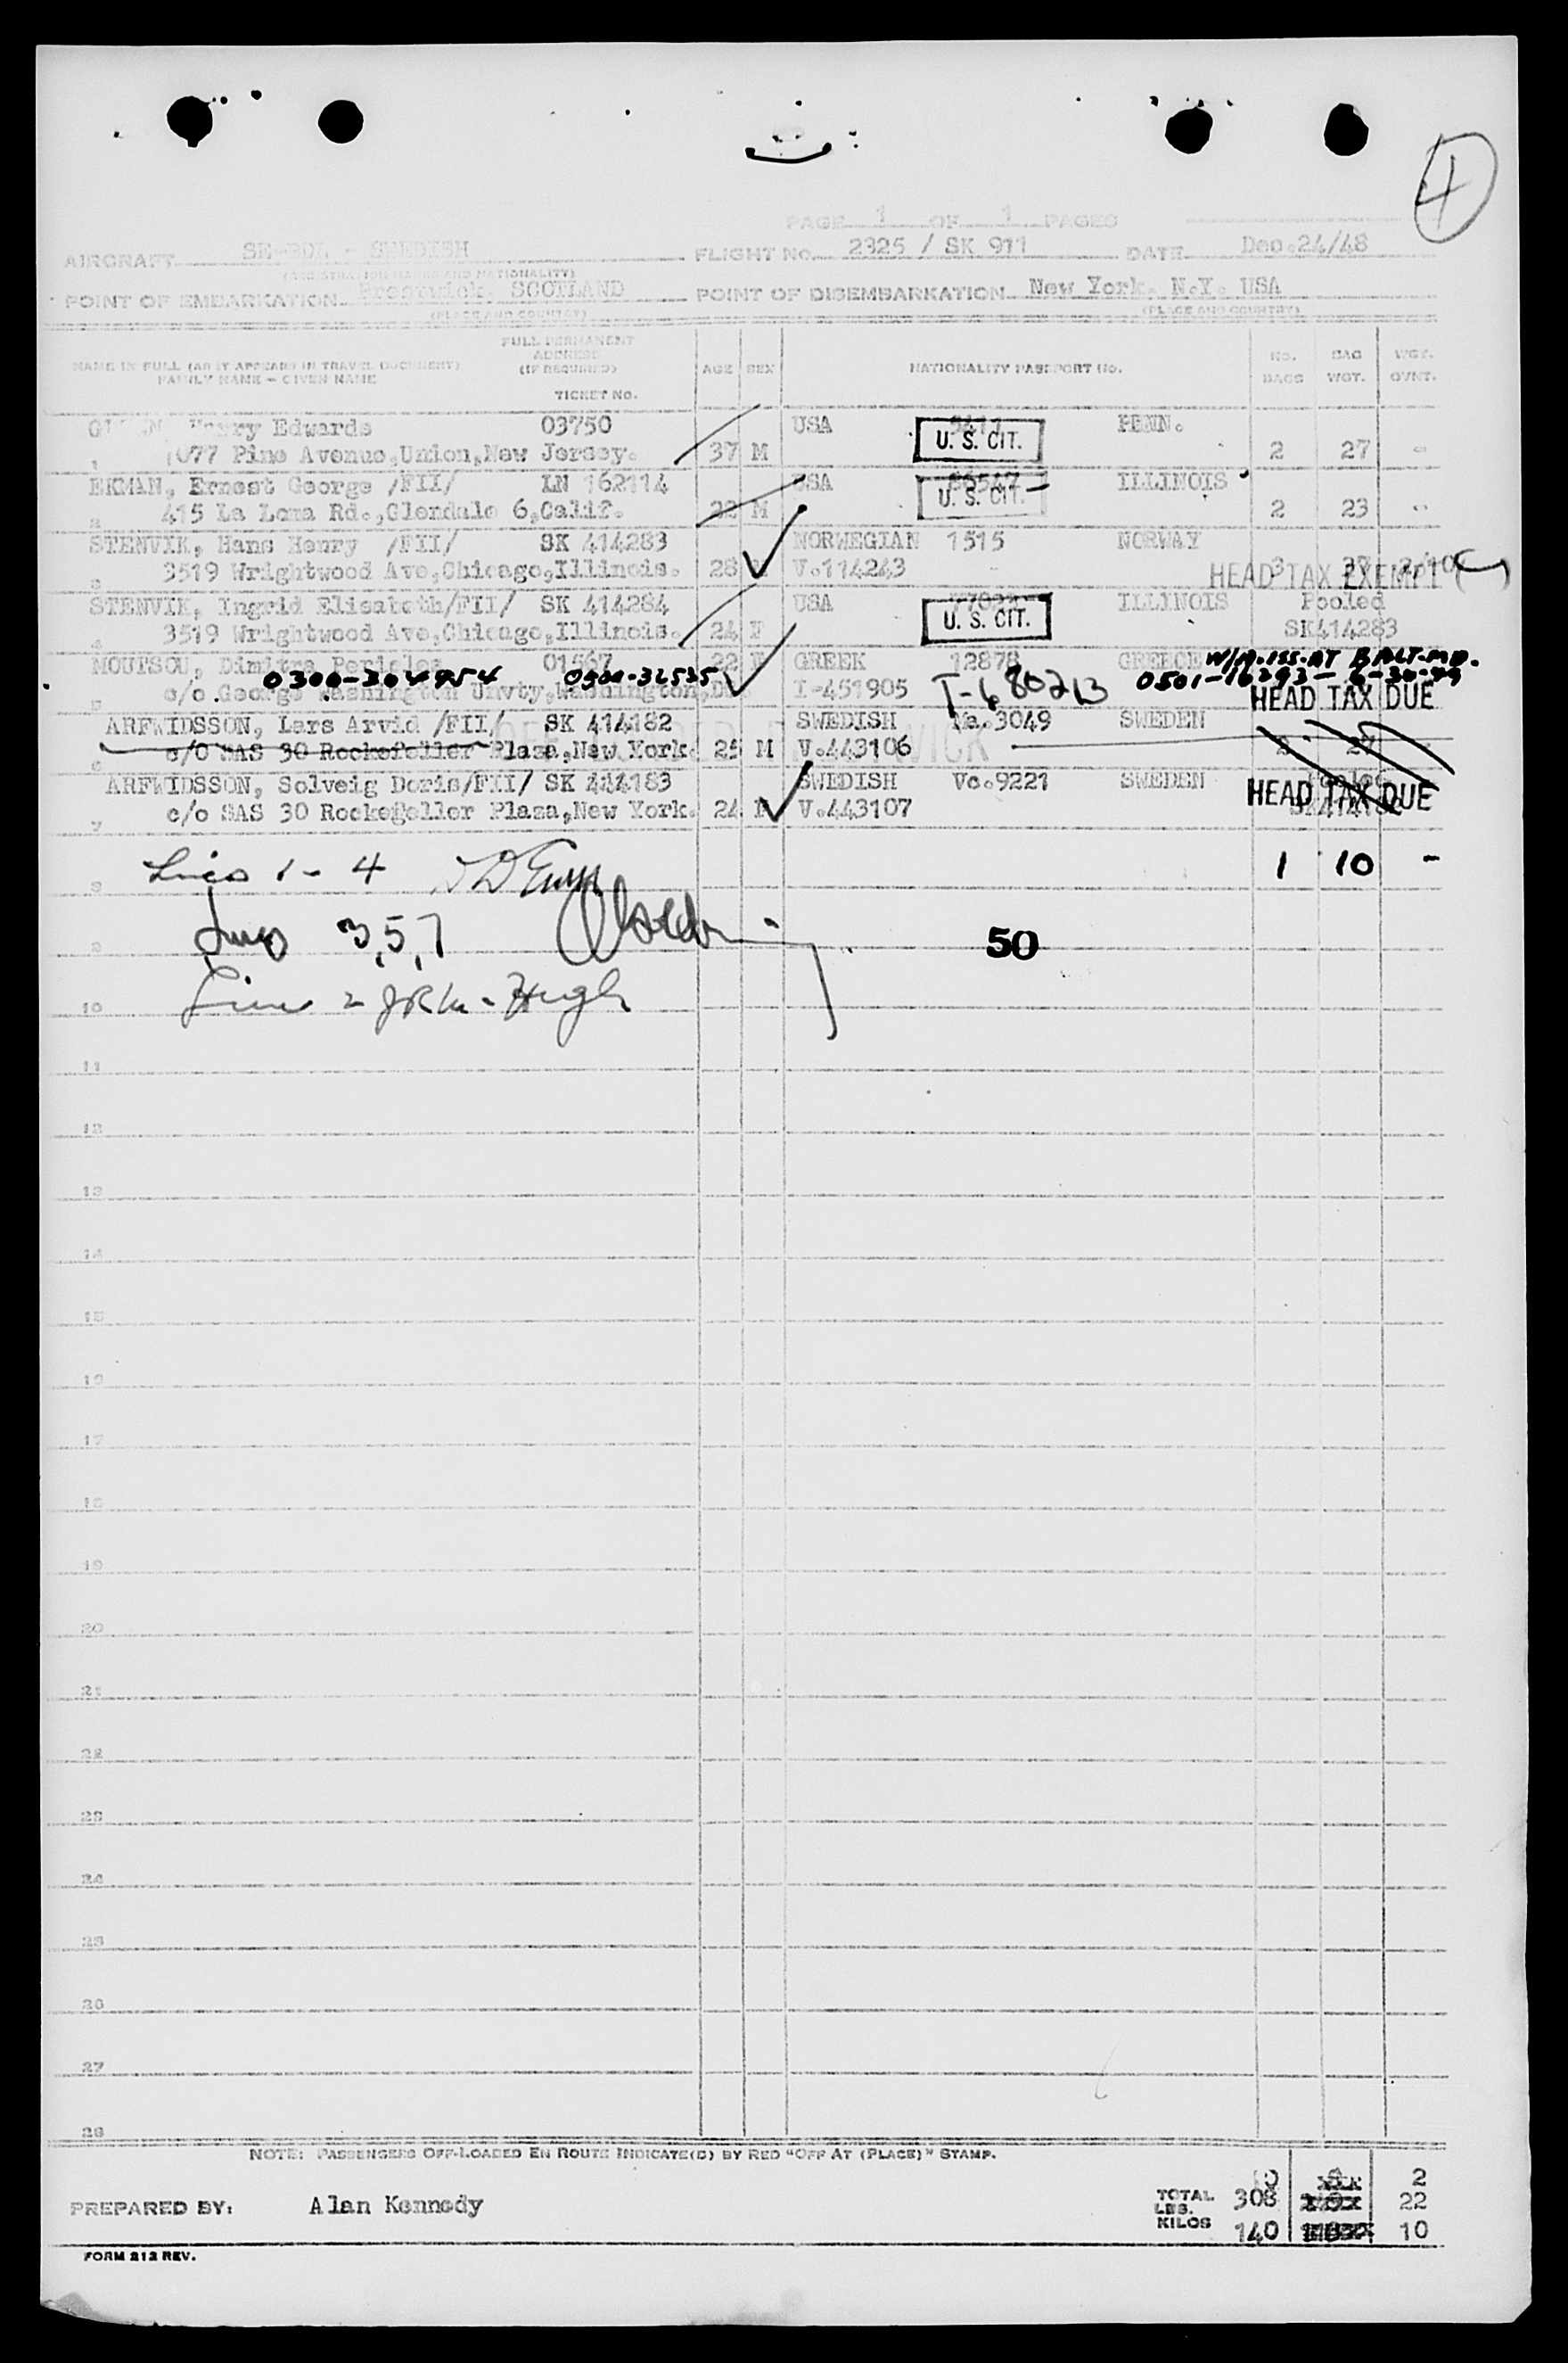 4
PAGE 1 OF 1 PAGES
AIRCRAFT SE-BDL - SWEDISH FLIGHT NO. 2325 / SK 911 DATE Dec.24/48
(REGISTRATION MARKS AND NATIONALITY)
POINT OF EMBARKATION Prestwick. SCOTLAND POINT OF DISEMBARKATION New York. N.Y. USA
(PLACE AND COUNTRY) (PLACE AND COUNTRY)
NAME IN FULL (AS IT APPEARS IN TRAVEL DOCUMENT) FAMILY NAME - GIVEN NAME FULL PERMANENT ADDRESS (IF REQUIRED) TICKET No. AGE SEX NATIONALITY PASSPORT No. No. BAGS BAG WGT. WGT. OVNT.
Henry Edwards 03750 USA PENN.
1 1077 Pine Avenue,Union,New Jersey. 37 M U. S. CIT. 2 27 -
EKMAN, Ernest George /FII/ LN 162114 USA 86547 ILLINOIS
2 415 La Loma Rd.,Glendale 6,Calif. 22 M U. S. CIT. 2 23 -
STENVIK, Hans Henry /FII/ SK 414283 NORWEGIAN 1515 NORWAY
3 3519 Wrightwood Ave,Chicago,Illinois. 28 V.114243 3 37 2/10
HEAD TAX EXEMPT ( )
STENVIK, Ingrid Elisabeth/FII/ SK 414284 USA ILLINOIS Pooled
4 3519 Wrightwood Ave,Chicago,Illinois. 24 F U. S. CIT. SK414283
MOUTSOU, Dimitra Pericles 01567 22 F GREEK 12878 GREECE W/A.ISS.AT BALT.MD.
0300-304954 0501-32535 T-680213 0501-16293- 6-30-49
5 c/o George Washington Unvty,Washington,DC I-451905 HEAD TAX DUE
ARFWIDSSON, Lars Arvid /FII/ SK 414182 SWEDISH Va.3049 SWEDEN
6 c/o SAS 30 Rockefeller Plaza,New York. 25 M V.443106 2 27
ARFWIDSSON, Solveig Doris/FII/ SK 414183 SWEDISH Vc.9221 SWEDEN Pooled
7 c/o SAS 30 Rockefeller Plaza,New York. 24 F V.443107 HEAD TAX DUE SK414182
Lines 1 - 4 1 10 -
8
Lines 3,5,7 50
9
Line 2
10
11
12
13
14
15
16
17
18
19
20
21
22
23
24
25
26
27
28
NOTE: PASSENGERS OFF-LOADED EN ROUTE INDICATE(D) BY RED "OFF AT (PLACE)" STAMP.
10 2
PREPARED BY: Alan Kennedy TOTAL LBS. 308 22
KILOS 140 10
FORM 212 REV.